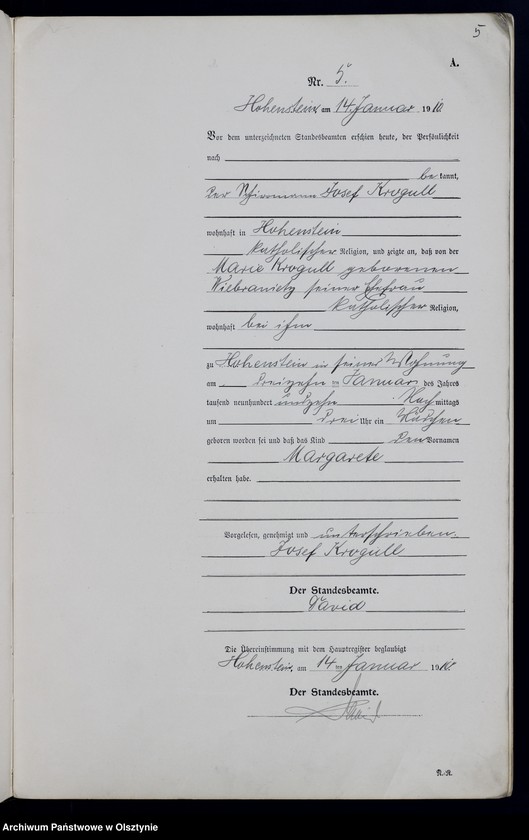 5
A.
Nr. 5.
Hohenstein am 14 Januar 1910
Vor dem unterzeichneten Standesbeamten erschien heute, der Persönlichkeit
nach
bekannt,
der Josef Krogull
wohnhaft in Hohenstein
katholischer Religion, und zeigte an, daß von der
Marie Krogull geborenen
seiner Ehefrau
katholischer Religion,
wohnhaft bei ihm
zu Hohenstein in seiner Wohnung
am dreizehn ten Januar des Jahres
tausend neunhundert undzehn Nachmittags
um drei Uhr ein Mädchen
geboren worden sei und daß das Kind den Vornamen
Margarete
erhalten habe.
Vorgelesen, genehmigt und unterschrieben.
Josef Krogull
Der Standesbeamte.
David
Die Übereinstimmung mit dem Hauptregister beglaubigt
Hohenstein, am 14 ten Januar 1910
Der Standesbeamte.
David
N.-R.
Archiwum Państwowe w Olsztynie